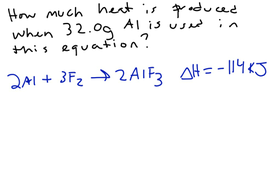 How much heat is produced
when 32.0g Al is used in
this equation?
2Al + 3F₂ → 2AlF₃ ΔH = -114 KJ